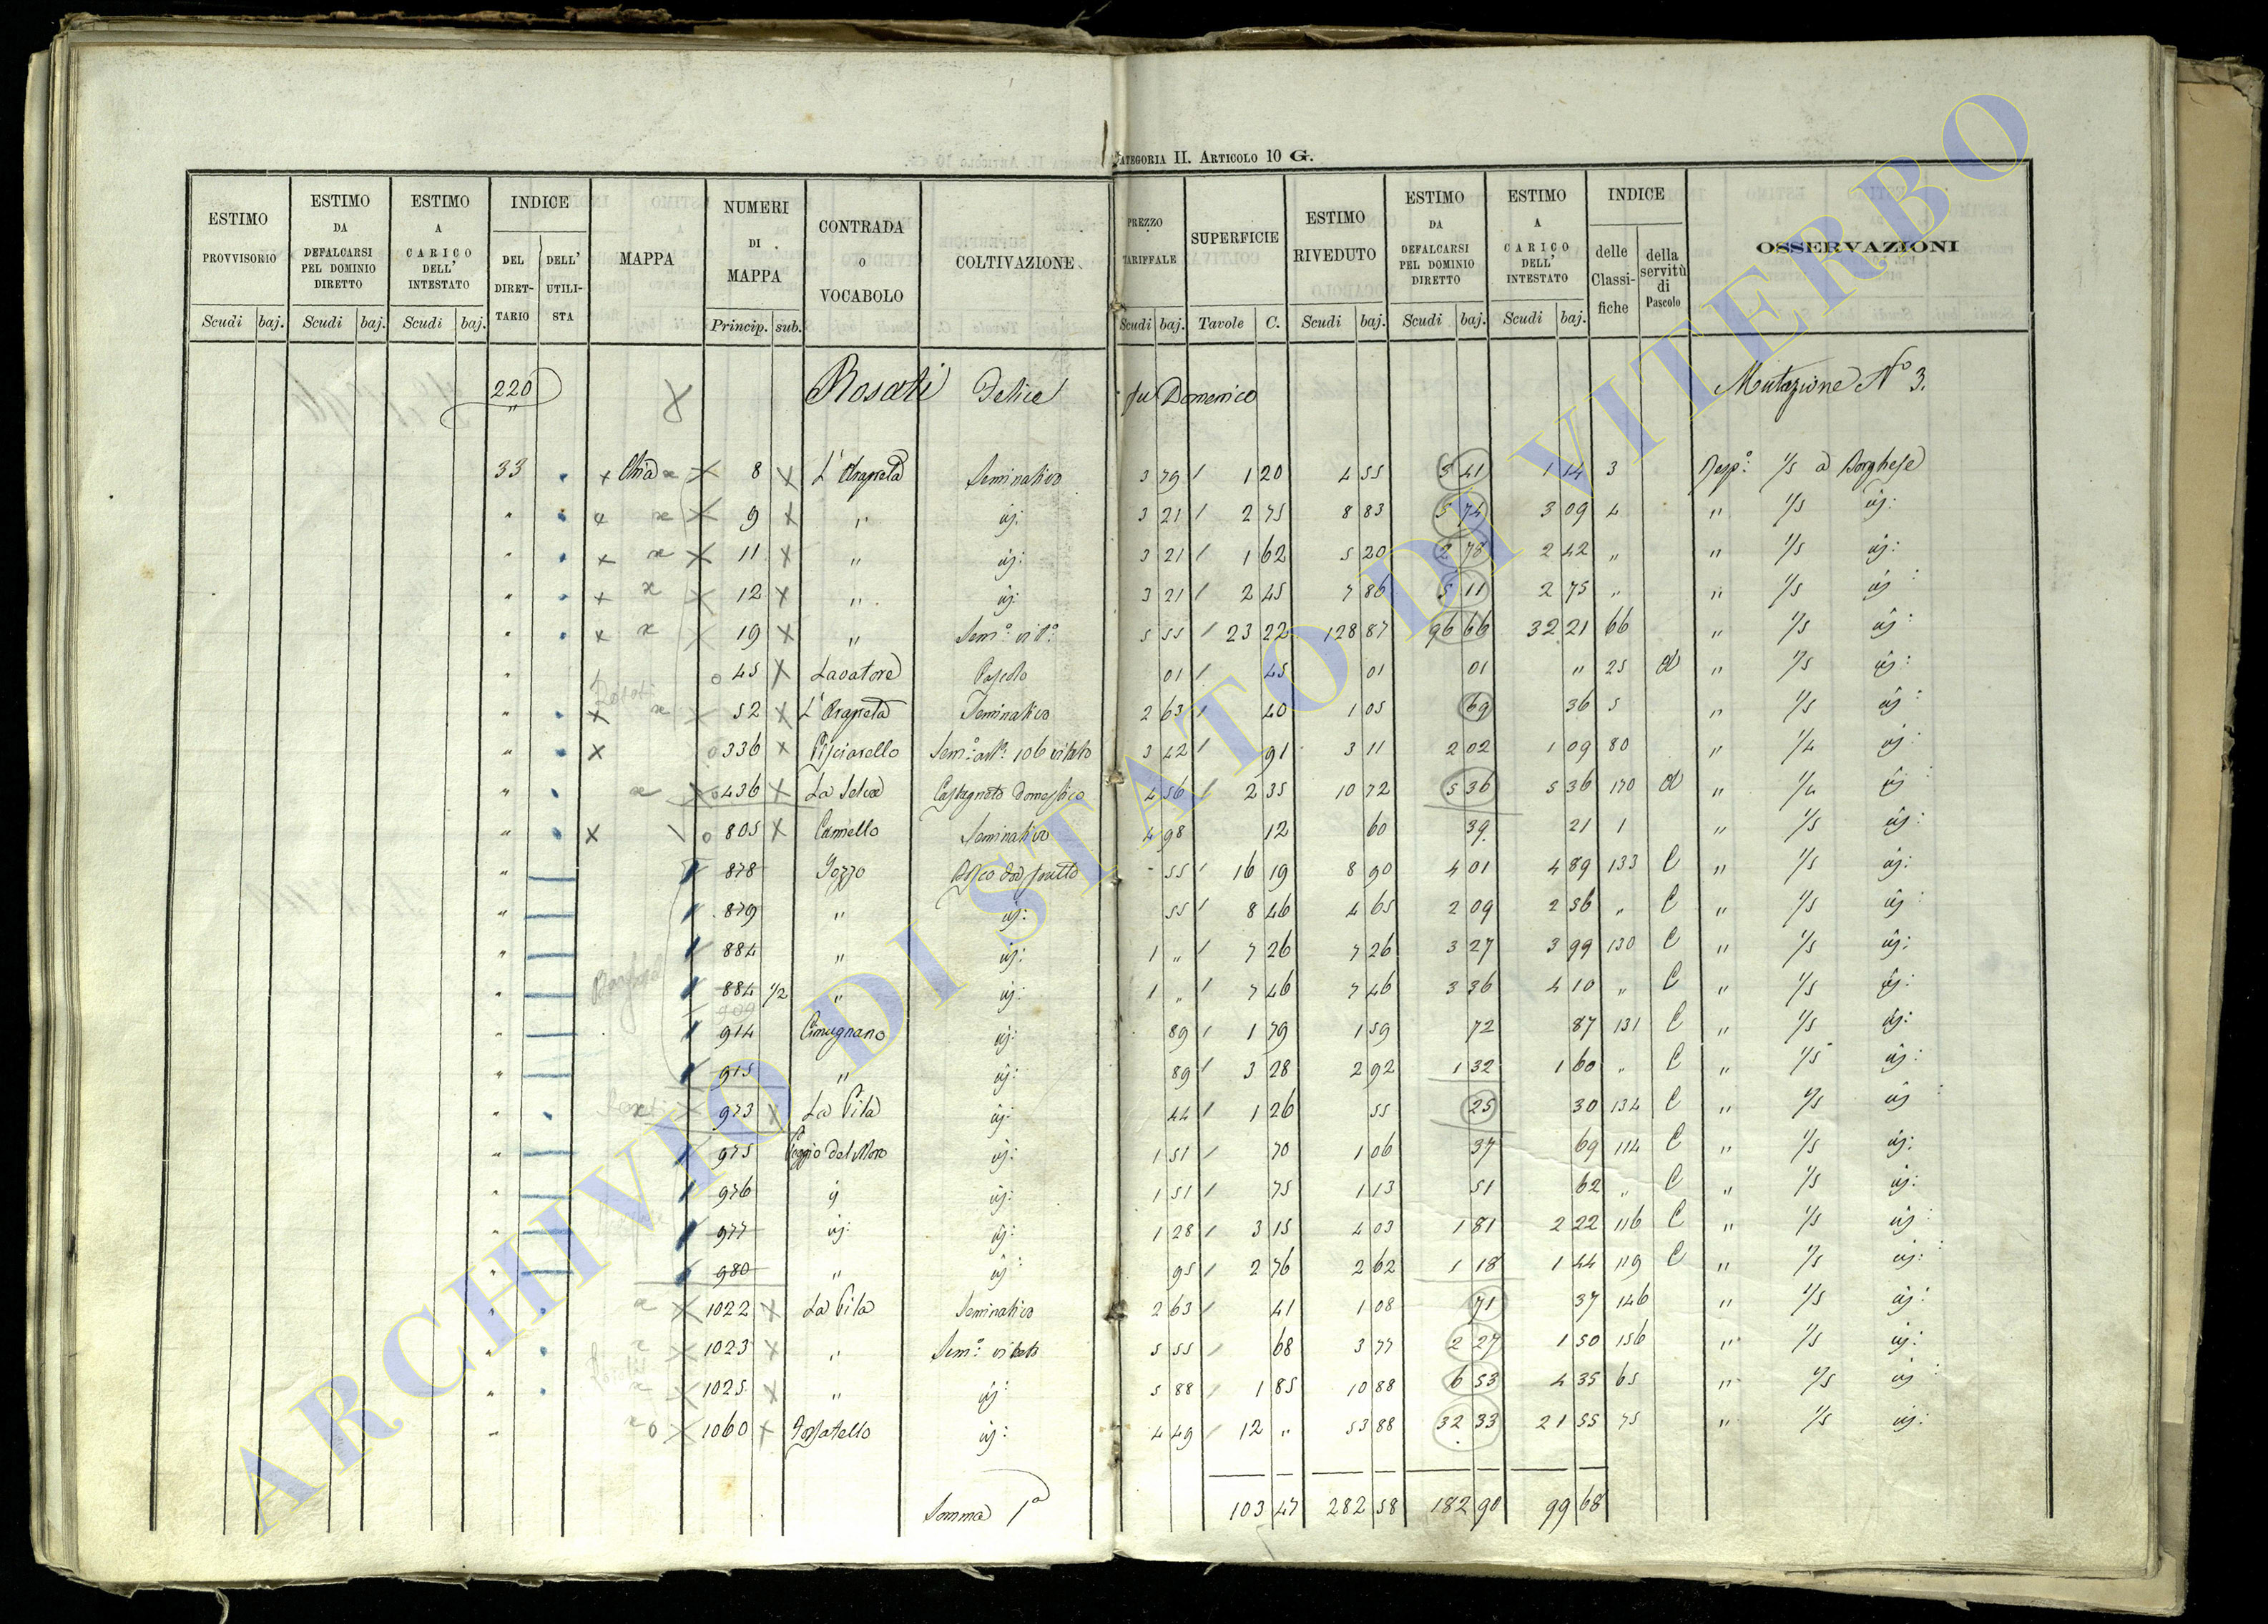 CATEGORIA II. ARTICOLO 10 G.
ESTIMO PROVVISORIO Scudi baj. ESTIMO DA DEFALCARSI PEL DOMINIO DIRETTO Scudi baj. ESTIMO A CARICO DELL' INTESTATO Scudi baj. INDICE DEL DIRET-TARIO DELL' UTILI-STA MAPPA NUMERI DI MAPPA Princip. sub. CONTRADA O VOCABOLO COLTIVAZIONE PREZZO TARIFFALE Scudi baj. SUPERFICIE Tavole C. ESTIMO RIVEDUTO Scudi baj. ESTIMO DA DEFALCARSI PEL DOMINIO DIRETTO Scudi baj. ESTIMO A CARICO DELL' INTESTATO Scudi baj. INDICE delle Classi-fiche della servitù di Pascolo OSSERVAZIONI
220 Rosati Felice fu Domenico Mutazione N° 3.
33 Chia 8 Seminativo 3 79 1 20 4 55 3 41 1 14 3 Resp.e 1/5 a Borghese
" 9 " id: 3 21 2 75 8 83 5 74 3 09 4 " 1/5 id:
" 11 " id: 3 21 1 62 5 20 2 78 2 42 " " 1/5 id:
" 12 " id: 3 21 2 45 7 86 5 11 2 75 " " 1/5 id
" 19 " Sem.o vit.o 5 55 23 22 128 87 96 66 32 21 66 " 1/5 id:
" 45 Lavatore Pascolo 01 45 01 01 " 25 d " 1/5 id:
" 52 Seminativo 2 63 40 1 05 69 36 5 " 1/5 id
" 336 Pisciarello 3 42 91 3 11 2 02 1 09 80 " 1/4 id:
" 436 La Selva Castagneto domestico 4 56 2 35 10 72 5 36 5 36 170 d " 1/4 id
" 805 Seminativo 4 98 12 60 39 21 1 " 1/5 id:
" 878 Pozzo Bosco 55 16 19 8 90 4 01 4 89 133 C " 1/5 id:
" 879 " id: 55 8 46 4 65 2 09 2 56 " C " 1/5 id
" 884 " id: 1 " 7 26 7 26 3 27 3 99 130 C " 1/5 id:
" 884 1/2 " id: 1 " 7 46 7 46 3 36 4 10 " C " 1/5 id:
" 914 Cimugnano id: 89 1 79 1 59 72 87 131 C " 1/5 id:
" 915 " id: 89 3 28 2 92 1 32 1 60 " C " 1/5 id:
" 973 La Pila id: 44 1 26 55 25 30 134 C " 1/5 id
" 975 Poggio del Moro id: 1 51 70 1 06 37 69 114 C " 1/5 id:
" 976 id id: 1 51 75 1 13 51 62 " C " 1/5 id:
" 977 id: id: 1 28 3 15 4 03 1 81 2 22 116 C " 1/5 id:
" 980 " id: 95 2 76 2 62 1 18 1 44 119 C " 1/5 id:
" 1022 La Pila Seminativo 2 63 41 1 08 71 37 146 " 1/5 id:
" 1023 " Sem.o vitato 5 55 68 3 77 2 27 1 50 156 " 1/5 id:
" 1025 " id: 5 88 1 85 10 88 6 53 4 35 65 " 1/5 id
" 1060 Fossatello id: 4 49 12 " 53 88 32 33 21 55 75 " 1/5 id:
Somma 1a 103 47 282 58 182 90 99 68
ARCHIVIO DI STATO DI VITERBO